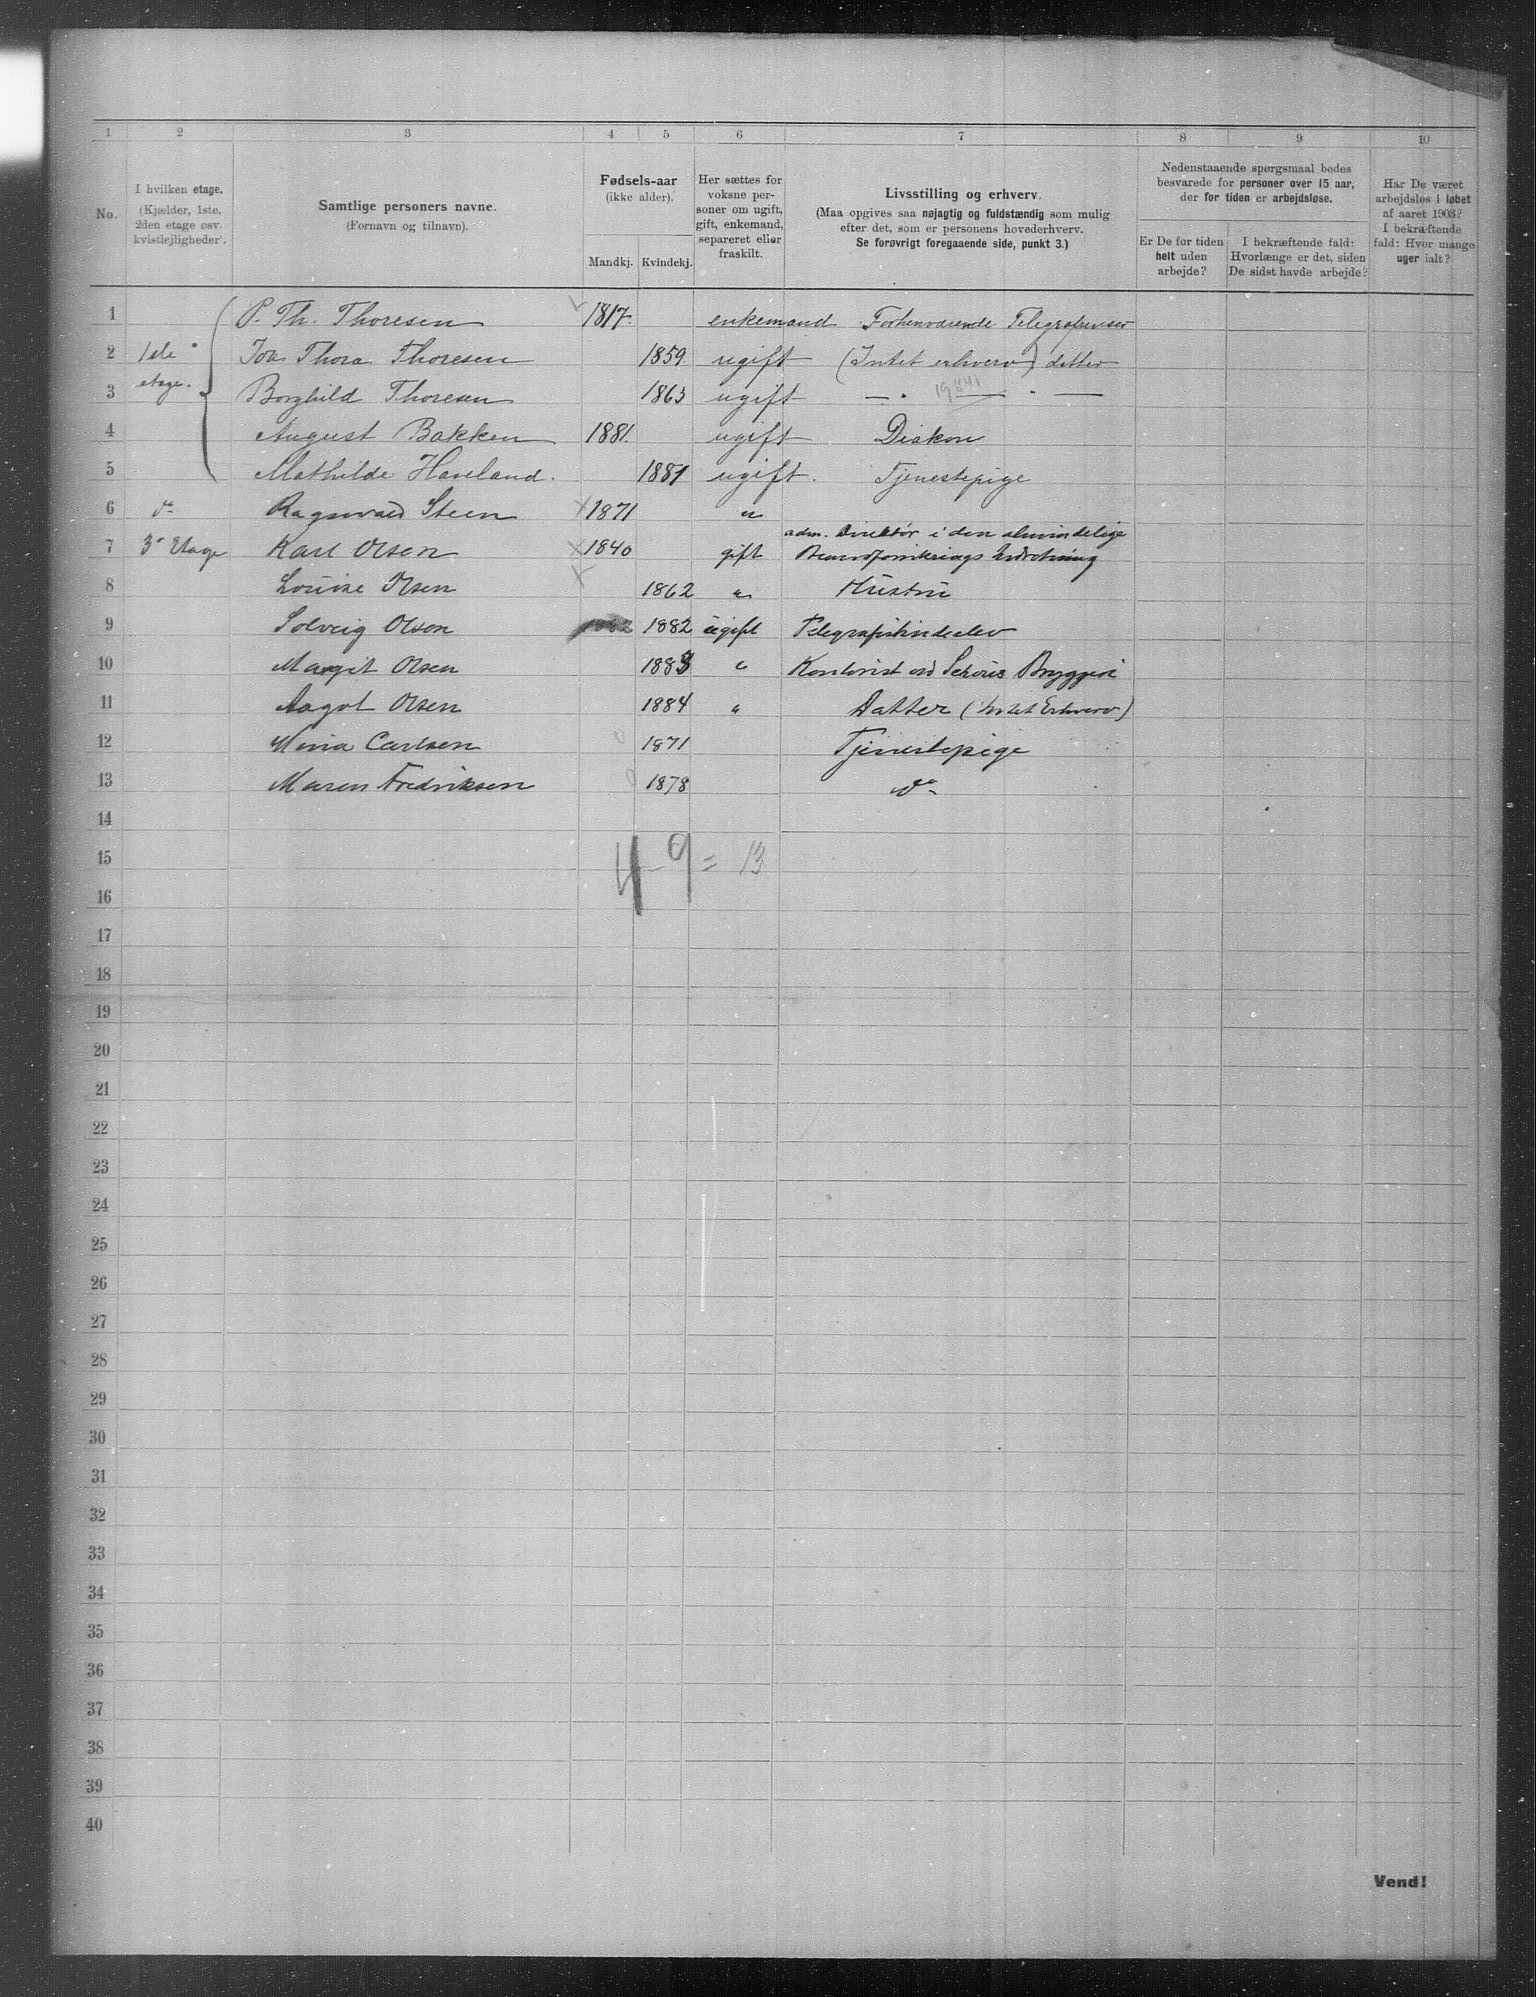 1 2 3 4 5 6 7 8 9 10
No.
I hvilken etage.
(Kjælder, 1ste,
2den etage osv.
kvistlejligheder).
Samtlige personers navne.
(Fornavn og tilnavn).
Fødsels-aar
(ikke alder).
Mandkj. Kvindekj.
Her sættes for
voksne per-
soner om ugift,
gift, enkemand,
separeret eller
fraskilt.
Livsstilling og erhverv.
(Maa opgives saa nøjagtig og fuldstændig som mulig
efter det, som er personens hovederhverv.
Se forøvrigt foregaaende side, punkt 3.)
Nedenstaaende spørgsmaal bedes
besvarede for personer over 15 aar,
der for tiden er arbejdsløse.
Er De for tiden
helt uden
arbejde?
I bekræftende fald:
Hvorlænge er det, siden
De sidst havde arbejde?
Har De været
arbejdsløs i løbet
af aaret 1903?
I bekræftende
fald: Hvor mange
uger ialt?
1 P. Th. Thoresen 1817. enkemand Forhenværende
2 1ste Thora Thoresen 1859 ugift (Intet erhverv) datter
3 etage. Borghild Thoresen 1863 ugift — " —
4 August Bakken 1881. ugift Diakon
5 Mathilde Haveland. 1881 ugift. Tjenestepige
6 do Ragnvald Steen 1871 "
adm. Direktør i den almindelige
7 3e Etage Karl Olsen 1840 gift Indretning
8 Louise Olsen 1862 " Hustru
9 Solveig Olsen 1882 1882 ugift Telegrafistindeelev
10 Margit Olsen 1883 " Kontorist ved Schous Bryggeri
11 Aagot Olsen 1884 " Datter (Intet Erhverv)
12 Mina Carlsen 1871 Tjenestepige
13 Maren Fredriksen 1878 do
14
15 4 - 9 = 13
16
17
18
19
20
21
22
23
24
25
26
27
28
29
30
31
32
33
34
35
36
37
38
39
40
Vend!